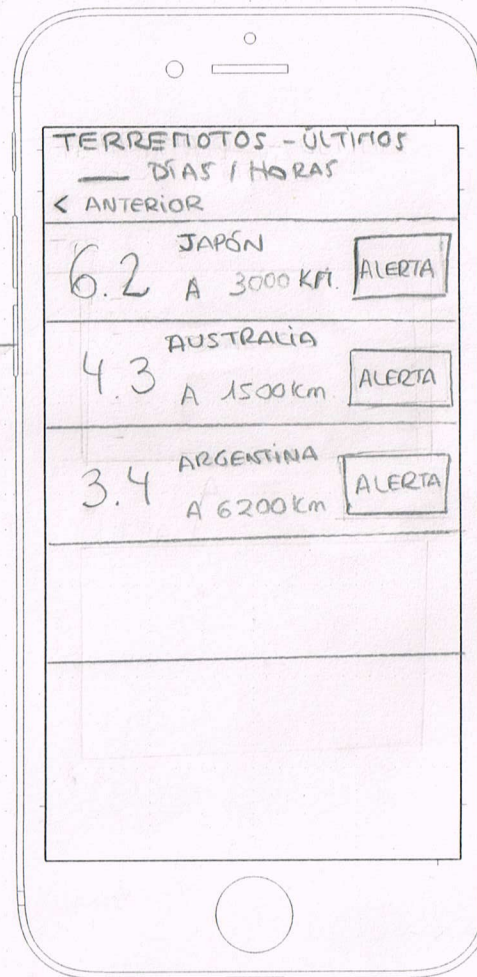 TERREMOTOS - ÚLTIMOS
___ DÍAS / HORAS
< ANTERIOR
JAPÓN
6.2 A 3000 KM. ALERTA
AUSTRALIA
4.3 A 1500 Km ALERTA
ARGENTINA
3.4 A 6200 Km ALERTA